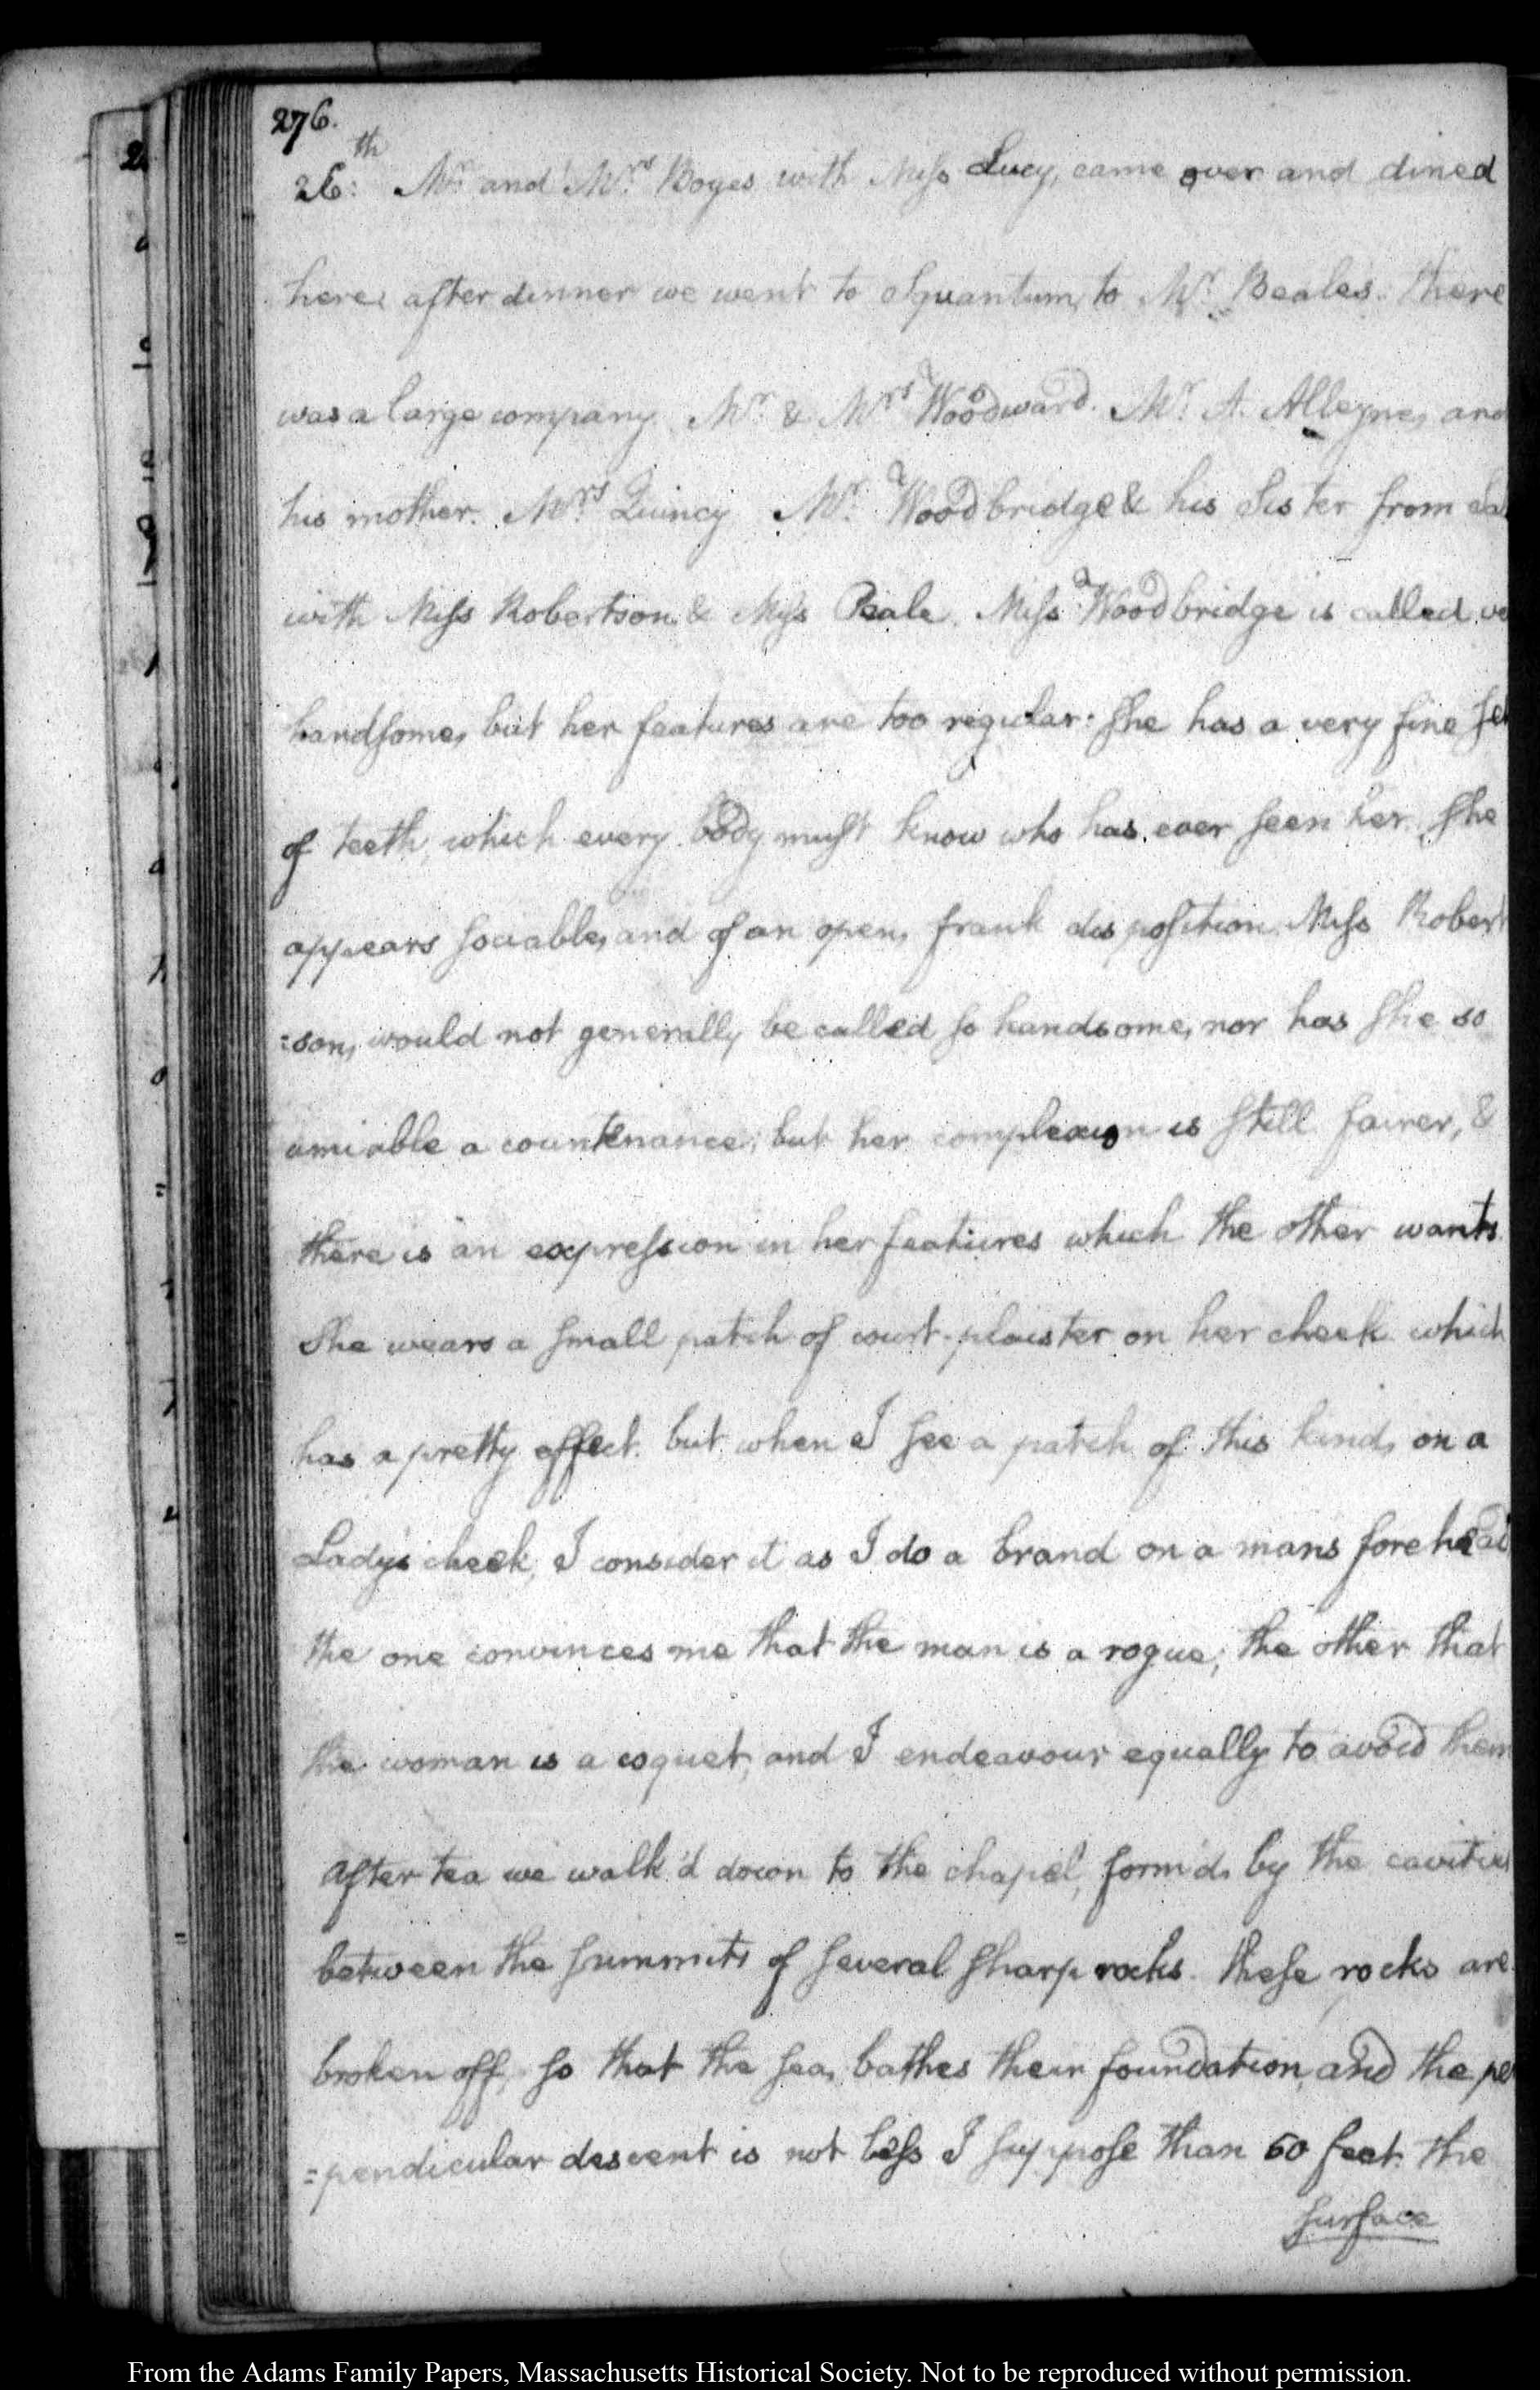 276.
26:th Mr. and Mrs. Boyes with Miss Lucy, came over and dined
here, after dinner we went to Squantum, to Mr. Beales. there
was a large company. Mr. & Mrs. Woodward. Mr. A. Alleyne, and
his mother. Mrs. Quincy Mr. Woodbridge & his Sister from
with Miss Robertson, & Miss Beale. Miss Woodbridge is called
handsome, but her features are too regular: she has a very fine set
of teeth, which every body must know who has ever seen her. She
appears sociable, and of an open, frank disposition. Miss Robert
=son, would not generally be called so handsome, nor has she so
amiable a countenance; but her complexion is still fairer, &
there is an expression in her features which the other wants.
She wears a small patch of court-plaister on her cheek which
has a pretty effect. but when I see a patch of this kind, on a
Lady's cheek, I consider it as I do a brand on a mans forehead
the one convinces me that the man is a rogue; the other that
the woman is a coquet, and I endeavour equally to avoid them
After tea we walk'd down to the chapel, form'd, by the cavities
between the summits of several sharp rocks. these rocks are
broken off, so that the sea, bathes their foundation, and the per
=pendicular descent is not less I suppose than 60 feet. the
surface
From the Adams Family Papers, Massachusetts Historical Society. Not to be reproduced without permission.